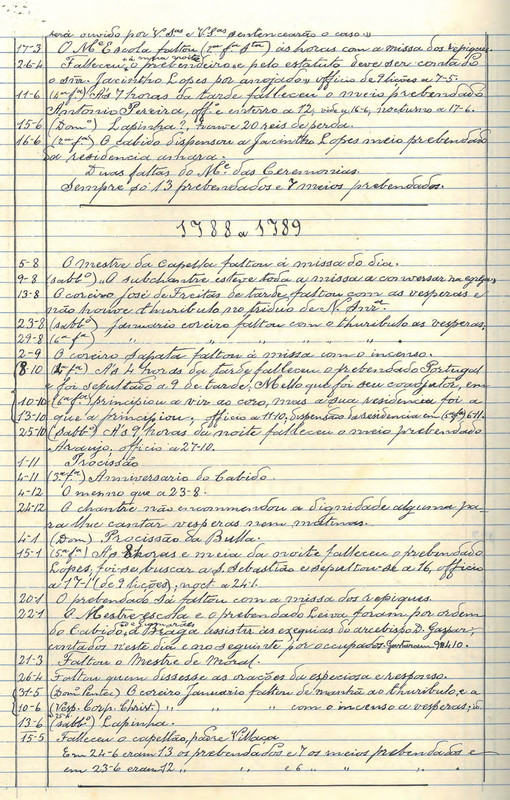 será ouvido por V. Sas e V. Sas sentencearão o caso »
17-3 O Me Escola faltou (2a fa Sta) ás horas com a missa dos repiques.
26-4 Falleceu o prebendeiro, e pelo estatuto deve ser contado
o snr. Jacintho Lopes por anojado, officio de 9 lições a 7-5.
11-6 (4a fa) A's 7 horas da tarde falleceu o meio prebendado
Antonio Pereira, offo e enterro a 12, vide a 16-6, nocturno a 17-6.
15-6 (Domo) Lapinha, 20 reis de perda.
16-6 (2a fa) O cabido dispensou a Jacintho Lopes meio prebendado
da residencia amara.
Duas faltas do Me das Ceremonias.
Sempre só 13 prebendados e 7 meios prebendados.
1788 a 1789
5-8 O mestre da Capella faltou á missa do dia.
9-8 (sabbo) O subchantre esteve toda a missa a conversar na egreja.
13-8 O coreiro José de Freitas de tarde faltou com as vesperas e
não houve thuribulo no triduo de N. Snra
23-8 (sabbo) Januario coreiro faltou com o thuribulo as vesperas.
29-8 (6a fa) " " " " " " "
2-9 O coreiro Sapata faltou á missa com o incenso.
8-10 (4a fa) A's 4 horas da tarde falleceu o prebendado Portugal
e foi sepultado a 9 de tarde; Mello que foi seu coadjutor, em
10-10 (6a fa) principiou a vir ao coro, mas a sua residencia foi a
13-10 que a principiou; officio a 11-10, dispensão da residencia em (5a fa) 6-11.
25-10 (Sabbo) A's 9 horas da noite falleceu o meio prebendado
Araujo, officio a 27-10.
1-11 Procissão
4-11 (3a fa) Anniversario do Cabido.
4-12 O mesmo que a 23-8.
24-12 O chantre não encommendou a dignidade alguma pa-
ra lhe cantar vesperas nem matinas.
4-1 (Dom) Procissão da Bulla.
15-1 (5a fa) A's 8 horas e meia da noite falleceu o prebendado
Lopes, foi-se buscar a S. Sebastião e sepultou-se a 16, officio
a 17-1 (de 9 lições), noct. a 24-1.
20-1 O prebendado Sá faltou com a missa dos repiques.
22-1 O Mestre escola e o prebendado Leiva foram por ordem
do Cabido, de Guimarães a Braga assistir ás exequias do arcebispo D. Gaspar;
contados neste dia e no seguinte por occupados. Ganharam 9$410.
21-3 Faltou o Mestre de Moral.
26-4 Faltou quem dissesse as orações da especiosa e responso.
31-5 (Domo Pentec) O coreiro Januario faltou de manhã ao thuribulo, e a
10-6 (Vesp. Corp. Christ.) " " " com o incenso a vesperas; d.
13-6 (sabbo) Lapinha.
15-5 Falleceu o capellão, padre Villaça
Em 24-6 eram 13 os prebendados e 7 os meios prebendados e
em 23-6 eram 12 " " e 6 " " " "